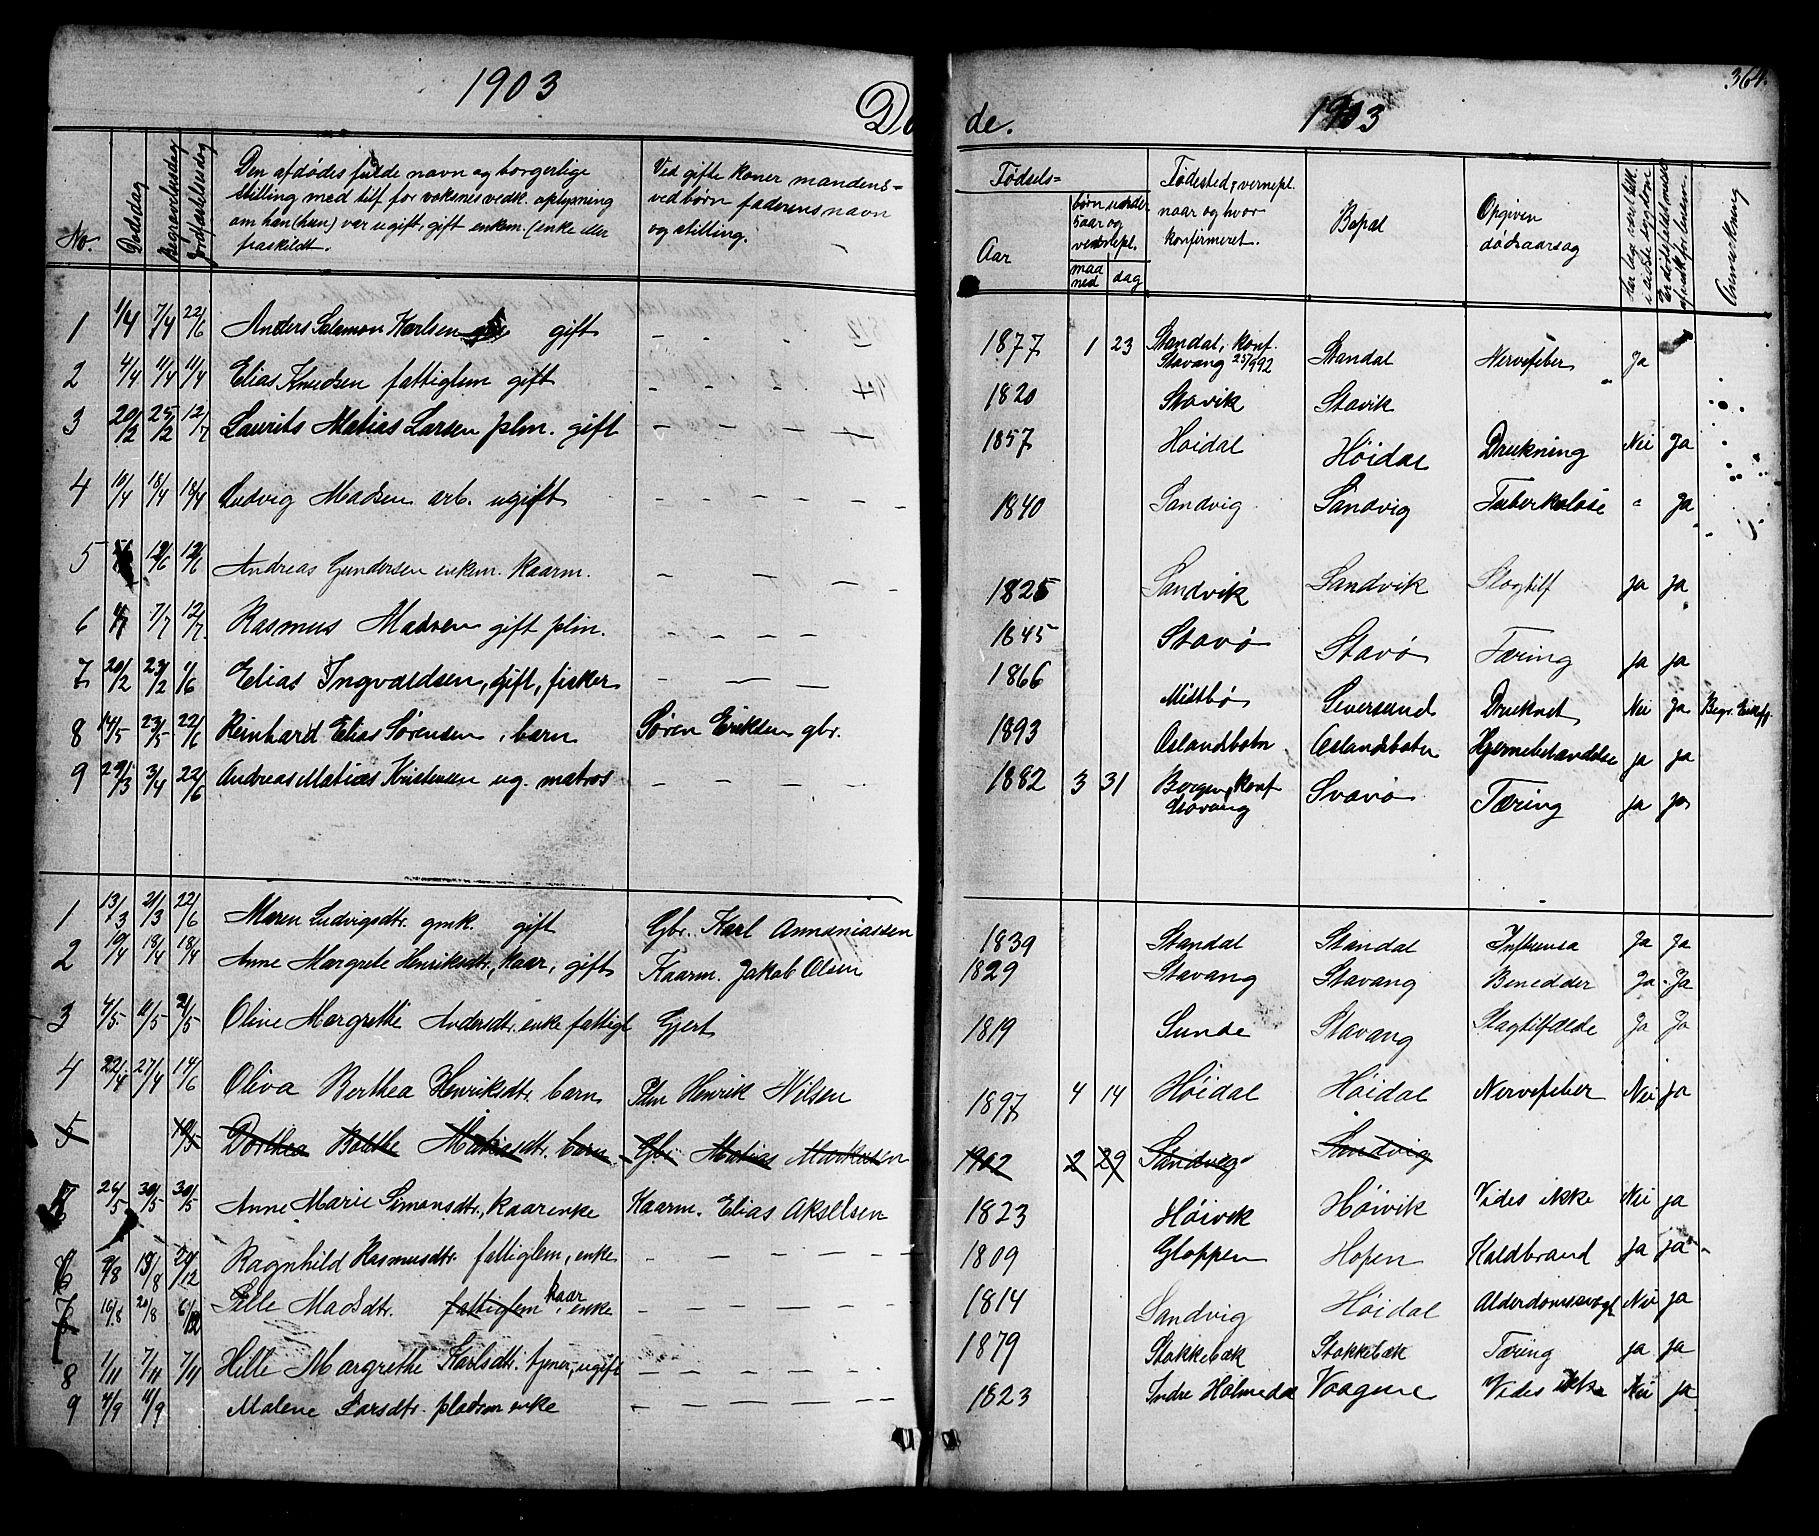 1903
Dø
No.
Dødsdag
Begravelsesdag
Jordfæstelsesdag
Den afdødes fulde navn og borgerlige
stilling med till. for voksnes vedk. oplysning
om han (hun) var ugift, gift enkem. (enke eller
fraskildt.
Ved gifte koner mandens -
ved børn faderens navn
og stilling.
1 1/4 7/4 22/6 Anders Salamon Karlsen gift — — — —
2 4/4 11/4 11/4 Elias Knudsen fattiglem gift — — — —
3 20/2 25/2 12/7 Laurits Matias Larsen plm. gift — — — —
4 10/4 18/4 18/4 Ludvig Madsen arb. ugift — — — —
5 12/6 12/6 Andreas Gundersen enkem. kaarm. — — —
6 4/7 7/7 12/7 Rasmus Madsen gift plm. — — — —
7 20/2 23/2 1/6 Elias Ingvaldsen, gift, fisker — — —
8 14/5 23/5 22/6 Reinhard Elias Sørensen, barn Søren Eriksen gbr.
9 29/3 3/4 22/6 Andreas Matias Kristensen ug. matros — — — —
1 13/3 21/3 22/6 Maren Ludvigsdtr. gmk. gift Gbr. Karl Annaniassen
2 10/4 18/4 18/4 Anne Margrete Henriksdtr., kaar, gift Kaarm. Jakob Olsen
3 4/5 11/5 21/5 Oline Margrethe Andersdtr. enke fattigl Gjert
4 22/4 27/4 14/6 Oliva Berthea Henriksdtr. barn Plm Henrik Nilsen
5 10/5 Dorthea Bolethe Matiasdtr. barn Gbr. Matias Markusen
26/5 30/5 30/5 Anne Marie Simonsdtr., kaarenke Kaarm. Elias Akselsen
6 9/8 13/8 20/12 Ragnhild Rasmusdtr. fattiglem, enke — — — —
7 16/8 20/8 6/12 Pelle Madsdtr. fattiglem kaar, enke — — — —
8 1/11 7/11 7/11 Hille Margrethe Karlsdtr. tjener, ugift — — — —
9 4/9 11/9 Malene Larsdtr. pladsm enke — — — —
de.
1903
364.
Fødsels-
Aar
børn under
5 aar og
vernepl.
maaned
dag
Fødested, vernepl.
naar og hvor
konfirmeret.
Bopæl
Opgiven
dødsaarsag
Har læge været tilk.
i sidste sygdom
Er dødsfaldet meldt
Anmærkning
1877 1 23 Standal, konf.
Stavang 25/9 92 Standal Nervefeber Ja
1820 Stavik Stavik
1857 Høidal Høidal Drukning Nei Ja
1840 Sandvig Sandvig Tuberkolose " Ja
1825 Sandvik Sandvik Slagtilf ja ja
1845 Stavø Stavø Tæring ja ja
1866 Mistbø Leversund Druknet Nei Ja Begr.
1893 Oslandsbotn Oslandsbotn Hjernebetændelse ja ja
1882 3 31 Bergen, konf
Stavang Svavø Tæring ja ja
1839 Standal Standal Influensa Ja Ja
1829 Stavang Stavang Benedder Ja Ja
1819 Sunde Stavang Slagtilfælde Ja Ja
1897 4 14 Høidal Høidal Nervefeber Nei ja
1902 2 29 Sandvig Sandvig
1823 Høivik Høivik Vides ikke Nei ja
1809 Gloppen Hopen Koldbrand ja ja
1814 Sandvig Høidal Alderdomssvagh Nei ja
1879 Stokkebæk Stokkebæk Tæring ja ja
1823 Indre Holmedal Vaagene Vides ikke Nei ja